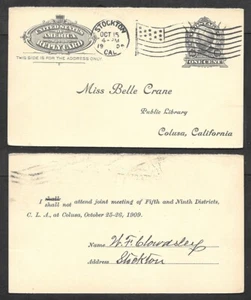 UNITED STATES
OF
AMERICA
REPLY CARD
THIS SIDE IS FOR THE ADDRESS ONLY
STOCKTON
OCT 15
4-PM
19
CAL.
ONE CENT
Miss Belle Crane
Public Library
Colusa, California
shall
I
shall not attend joint meeting of Fifth and Ninth Districts,
C. L. A., at Colusa, October 25-26, 1909.
Name W. F. Clowdsley
Address Stockton